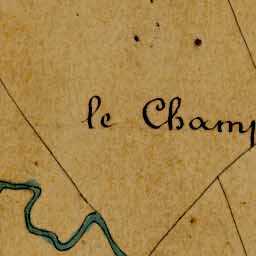 le Champ